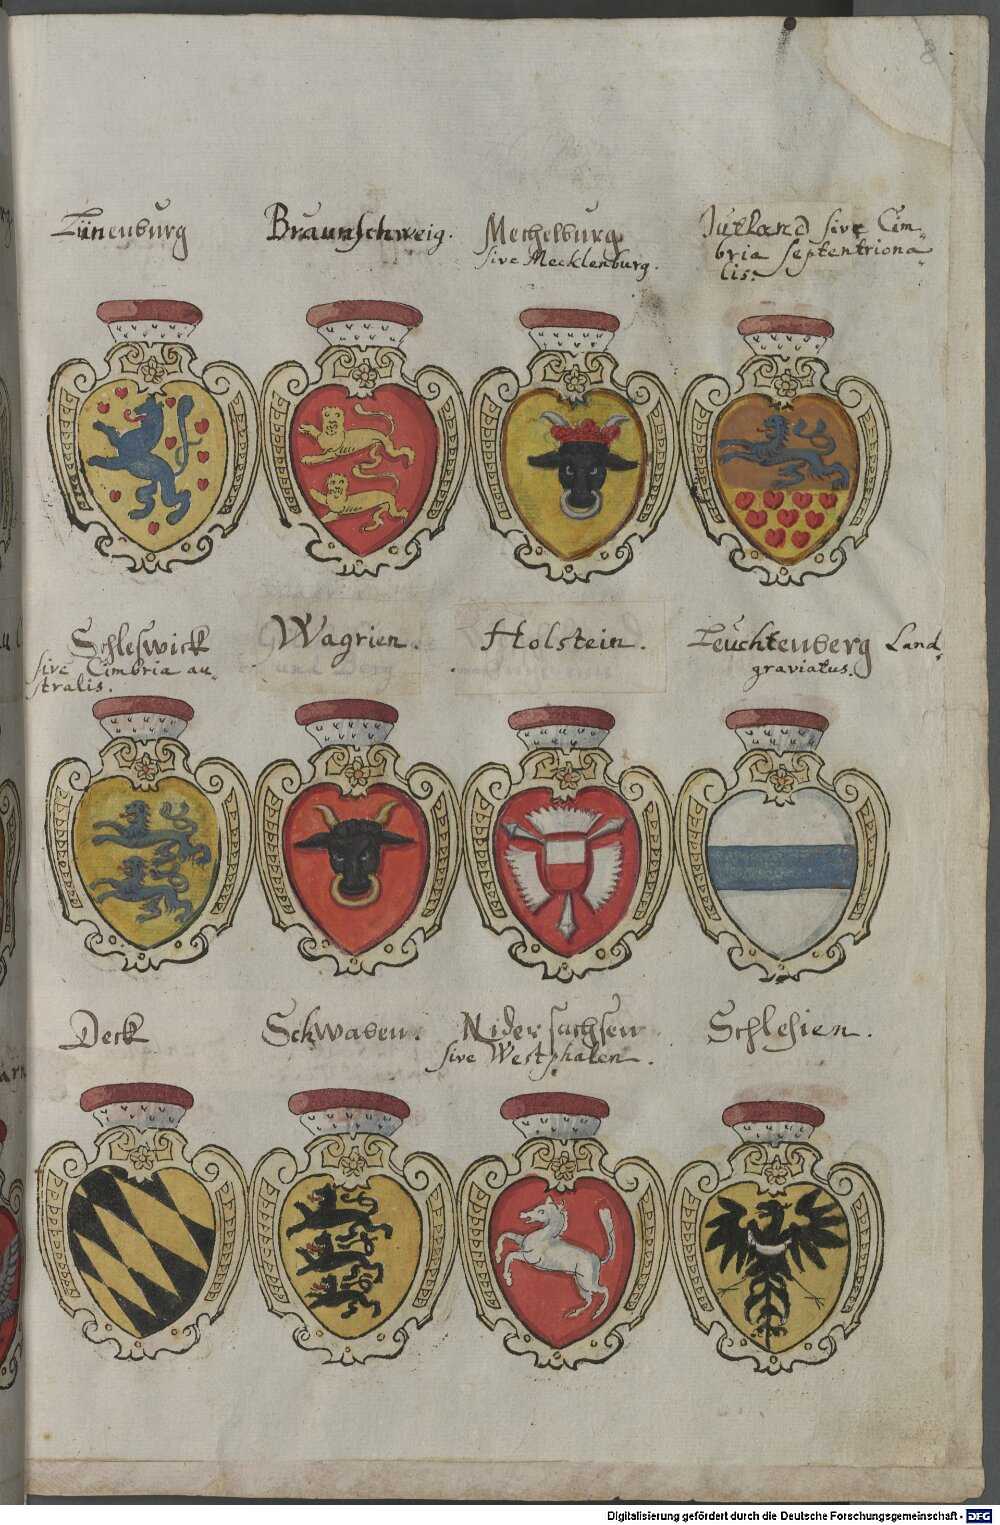 8
Lünenburg
Braunschweig.
Mechelburg
sive Mecklenburg.
Jutland sive Cim-
bria septentriona-
lis.
Schleswick
sive Cimbria au-
stralis.
Wagrien.
Holstein.
Leuchtenberg Land-
graviatus.
Deck
Schwaben.
Nidersachsen
sive Westphalen.
Schlesien.
Digitalisierung gefördert durch die Deutsche Forschungsgemeinschaft - DFG